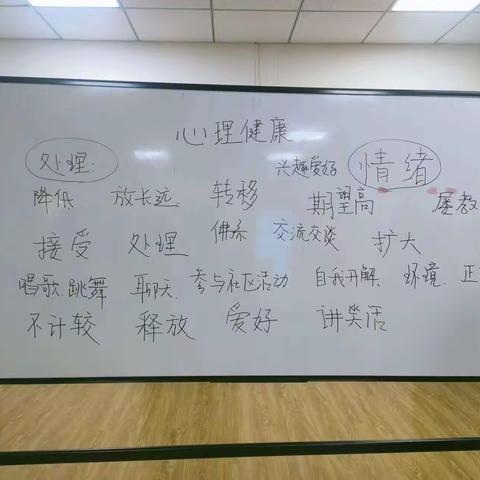 心理健康
处理: 兴趣爱好 情绪
降低 放长远 转移 期望高 屡教
接受 处理 佛系 交流交谈 扩大
唱歌跳舞 聊天 参与社区活动 自我开解 环境 正
不计较 释放 爱好 讲笑话